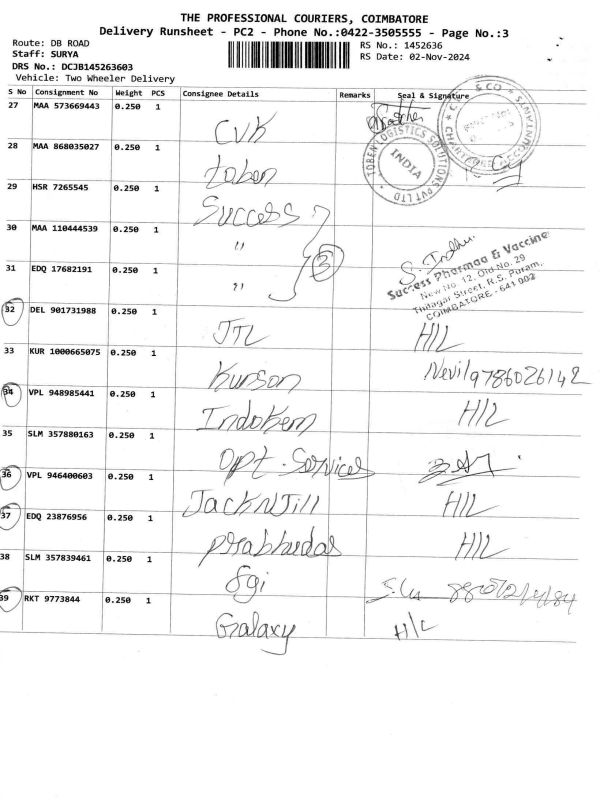 THE PROFESSIONAL COURIERS, COIMBATORE
Delivery Runsheet - PC2 - Phone No.:0422-3505555 - Page No.:3
Route: DB ROAD
RS No.: 1452636
Staff: SURYA
RS Date: 02-Nov-2024
DRS No.: DCJB145263603
Vehicle: Two Wheeler Delivery
S No Consignment No Weight PCS Consignee Details Remarks Seal & Signature
27 MAA 573669443 0.250 1 CVK
& CO
CHARTERED ACCOUNTANTS
28 MAA 868035027 0.250 1 toben
TOBEN LOGISTICS SOLUTIONS PVT LTD
INDIA
29 HSR 7265545 0.250 1 Success
30 MAA 110444539 0.250 1 "
3
S. Indhu
31 EDQ 17682191 0.250 1 "
Success Pharmaa & Vaccine
New No. 12, Old No. 29
Thilagar Street, R.S. Puram,
COIMBATORE - 641 002
32 DEL 901731988 0.250 1 JTL H/L
33 KUR 1000665075 0.250 1 Kurson Nevil 9786026142
34 VPL 948985441 0.250 1 Indokem H/L
35 SLM 357880163 0.250 1 Opt. Services
36 VPL 946400603 0.250 1 Jack N Jill H/L
37 EDQ 23876956 0.250 1 Prabhudas H/L
38 SLM 357839461 0.250 1 Sgi
39 RKT 9773844 0.250 1 Galaxy H/L